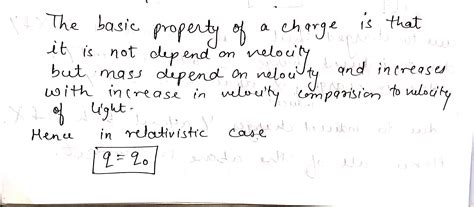 The basic property of a charge is that
it is not depend on velocity
but mass depend on velocity and increases
with increase in velocity comparision to velocity
of light.
Hence in relativistic case
q = q₀